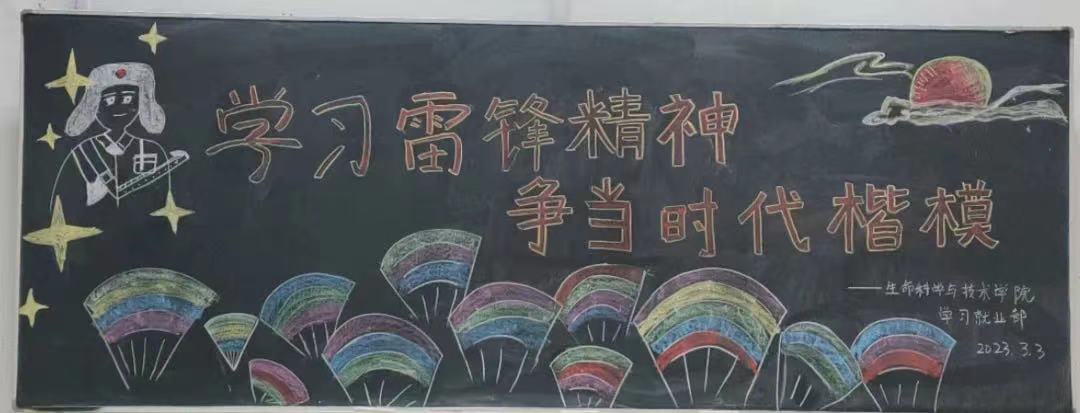 学习雷锋精神
争当时代楷模
——生命科学与技术学院
学习就业部
2023.3.3